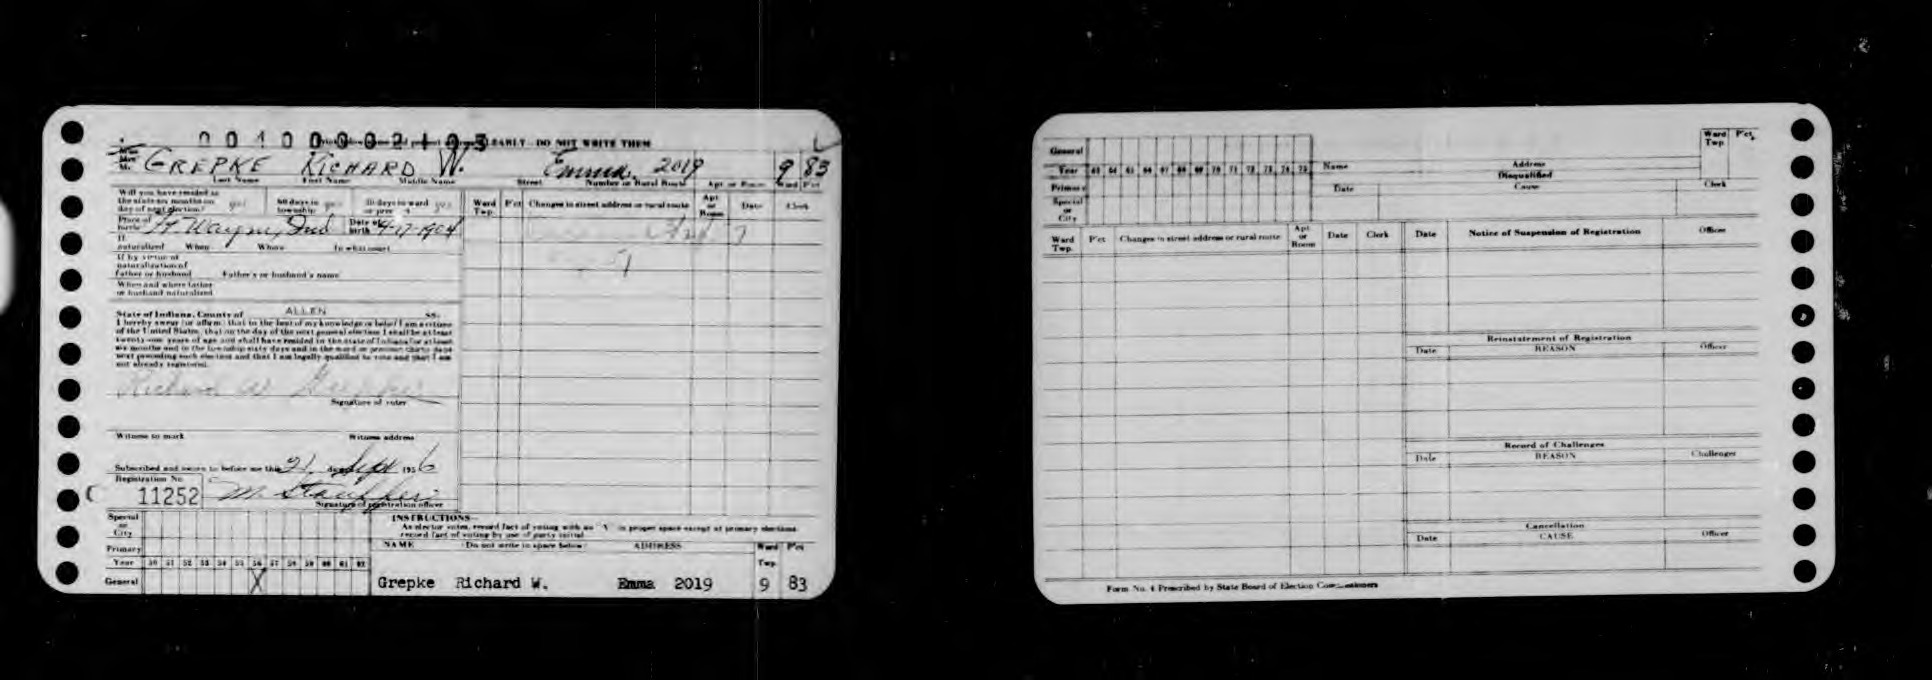 00100002103
EARLY - DO NOT WRITE THEM
Miss
Mrs.
Mr. GREPKE RICHARD W. Emma. 2019 9 83
Last Name First Name Middle Name Street Number or Rural Route Apt or Room Ward P'ct
Will you have resided in
the state six months on
day of next election? yes 60 days in
township yes 30 days in ward
or prec yes
Place of
birth Ft Wayne, Ind Date of
birth 4-17-1904
If
naturalized When Where In what court
If by virtue of
naturalization of
father or husband Father's or husband's name
When and where father
or husband naturalized
State of Indiana, County of ALLEN SS.
I hereby swear (or affirm) that to the best of my knowledge or belief I am a citizen
of the United States, that on the day of the next general election I shall be at least
twenty-one years of age and shall have resided in the state of Indiana for at least
six months and in the township sixty days and in the ward or precinct thirty days
next preceding such election and that I am legally qualified to vote and that I am
not already registered.
Richard W Grepke
Signature of voter
Witness to mark Witness address
Subscribed and sworn to before me this 21 day Sept 1956
Registration No.
11252 M. Stauffer
Signature of registration officer
Ward
Twp. P'ct Changes in street address or rural route Apt
or
Room Date Clerk
Special
or
City
Primary
Year 50 51 52 53 54 55 56 57 58 59 60 61 62
General X
INSTRUCTIONS—
As elector votes, record fact of voting with an "X" in proper space except at primary elections
record fact of voting by use of party initial
NAME (Do not write in space below) ADDRESS Ward
Twp. P'ct
Grepke Richard W. Emma 2019 9 83
General
Year 63 64 65 66 67 68 69 70 71 72 73 74 75
Primary
Special
or
City
Name Address Ward
Twp P'ct
Disqualified
Date Cause Clerk
Ward
Twp. P'ct Changes in street address or rural route Apt
or
Room Date Clerk
Date Notice of Suspension of Registration Officer
Reinstatement of Registration
Date REASON Officer
Record of Challenges
Date REASON Challenger
Cancellation
Date CAUSE Officer
Form No. 4 Prescribed by State Board of Election Commissioners